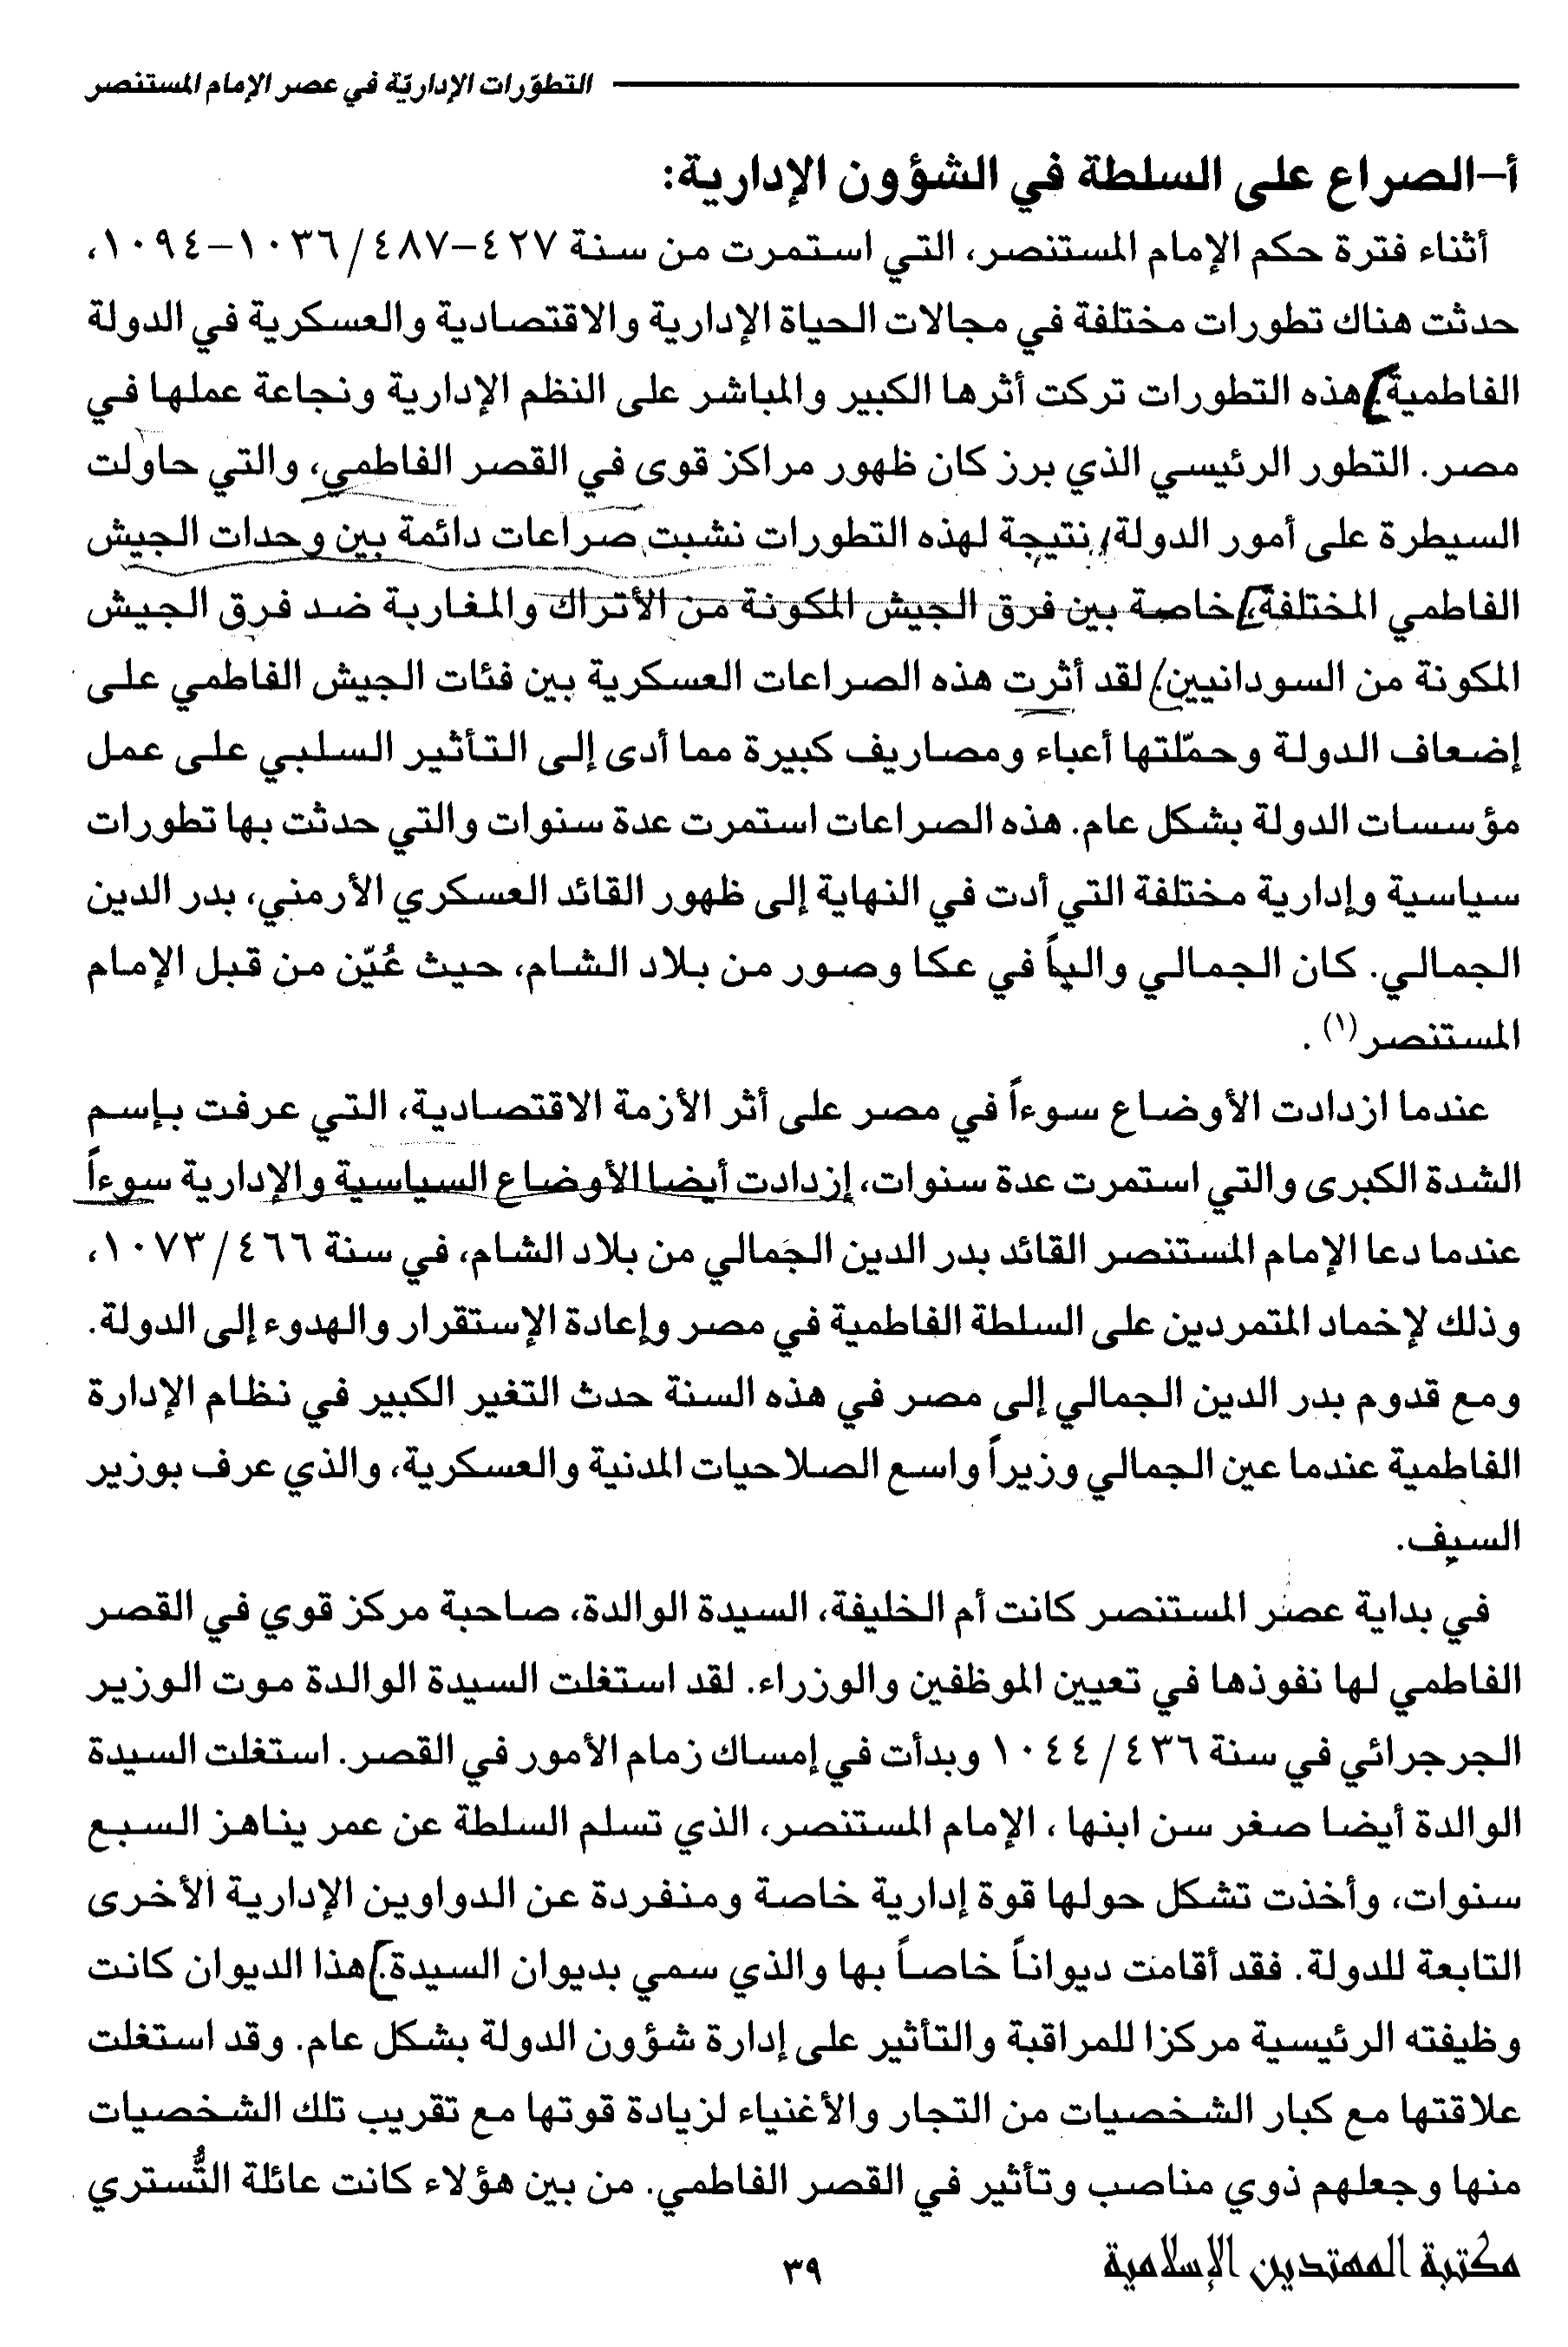 التطوّرات الإداريّة في عصر الإمام المستنصر
أ–الصراع على السلطة في الشؤون الإدارية:
أثناء فترة حكم الإمام المستنصر، التي استمرت من سنة ٤٢٧–٤٨٧/ ١٠٣٦–١٠٩٤،
حدثت هناك تطورات مختلفة في مجالات الحياة الإدارية والاقتصادية والعسكرية في الدولة
الفاطمية. هذه التطورات تركت أثرها الكبير والمباشر على النظم الإدارية ونجاعة عملها في
مصر. التطور الرئيسي الذي برز كان ظهور مراكز قوى في القصر الفاطمي، والتي حاولت
السيطرة على أمور الدولة، نتيجة لهذه التطورات نشبت صراعات دائمة بين وحدات الجيش
الفاطمي المختلفة، خاصة بين فرق الجيش المكونة من الأتراك والمغاربة ضد فرق الجيش
المكونة من السودانيين. لقد أثرت هذه الصراعات العسكرية بين فئات الجيش الفاطمي على
إضعاف الدولة وحمّلتها أعباء ومصاريف كبيرة مما أدى إلى التأثير السلبي على عمل
مؤسسات الدولة بشكل عام. هذه الصراعات استمرت عدة سنوات والتي حدثت بها تطورات
سياسية وإدارية مختلفة التي أدت في النهاية إلى ظهور القائد العسكري الأرمني، بدر الدين
الجمالي. كان الجمالي والياً في عكا وصور من بلاد الشام، حيث عُيّن من قبل الإمام
المستنصر(١) .
عندما ازدادت الأوضاع سوءاً في مصر على أثر الأزمة الاقتصادية، التي عرفت بإسم
الشدة الكبرى والتي استمرت عدة سنوات، إزدادت أيضا الأوضاع السياسية والإدارية سوءاً
عندما دعا الإمام المستنصر القائد بدر الدين الجمالي من بلاد الشام، في سنة ٤٦٦/ ١٠٧٣،
وذلك لإخماد المتمردين على السلطة الفاطمية في مصر وإعادة الإستقرار والهدوء إلى الدولة.
ومع قدوم بدر الدين الجمالي إلى مصر في هذه السنة حدث التغير الكبير في نظام الإدارة
الفاطمية عندما عين الجمالي وزيراً واسع الصلاحيات المدنية والعسكرية، والذي عرف بوزير
السيف.
في بداية عصر المستنصر كانت أم الخليفة، السيدة الوالدة، صاحبة مركز قوي في القصر
الفاطمي لها نفوذها في تعيين الموظفين والوزراء. لقد استغلت السيدة الوالدة موت الوزير
الجرجرائي في سنة ٤٣٦/ ١٠٤٤ وبدأت في إمساك زمام الأمور في القصر. استغلت السيدة
الوالدة أيضا صغر سن ابنها ، الإمام المستنصر، الذي تسلم السلطة عن عمر يناهز السبع
سنوات، وأخذت تشكل حولها قوة إدارية خاصة ومنفردة عن الدواوين الإدارية الأخرى
التابعة للدولة. فقد أقامت ديواناً خاصاً بها والذي سمي بديوان السيدة. هذا الديوان كانت
وظيفته الرئيسية مركزا للمراقبة والتأثير على إدارة شؤون الدولة بشكل عام. وقد استغلت
علاقتها مع كبار الشخصيات من التجار والأغنياء لزيادة قوتها مع تقريب تلك الشخصيات
منها وجعلهم ذوي مناصب وتأثير في القصر الفاطمي. من بين هؤلاء كانت عائلة التُّستري
مكتبة المهتدين الإسلامية
٣٩